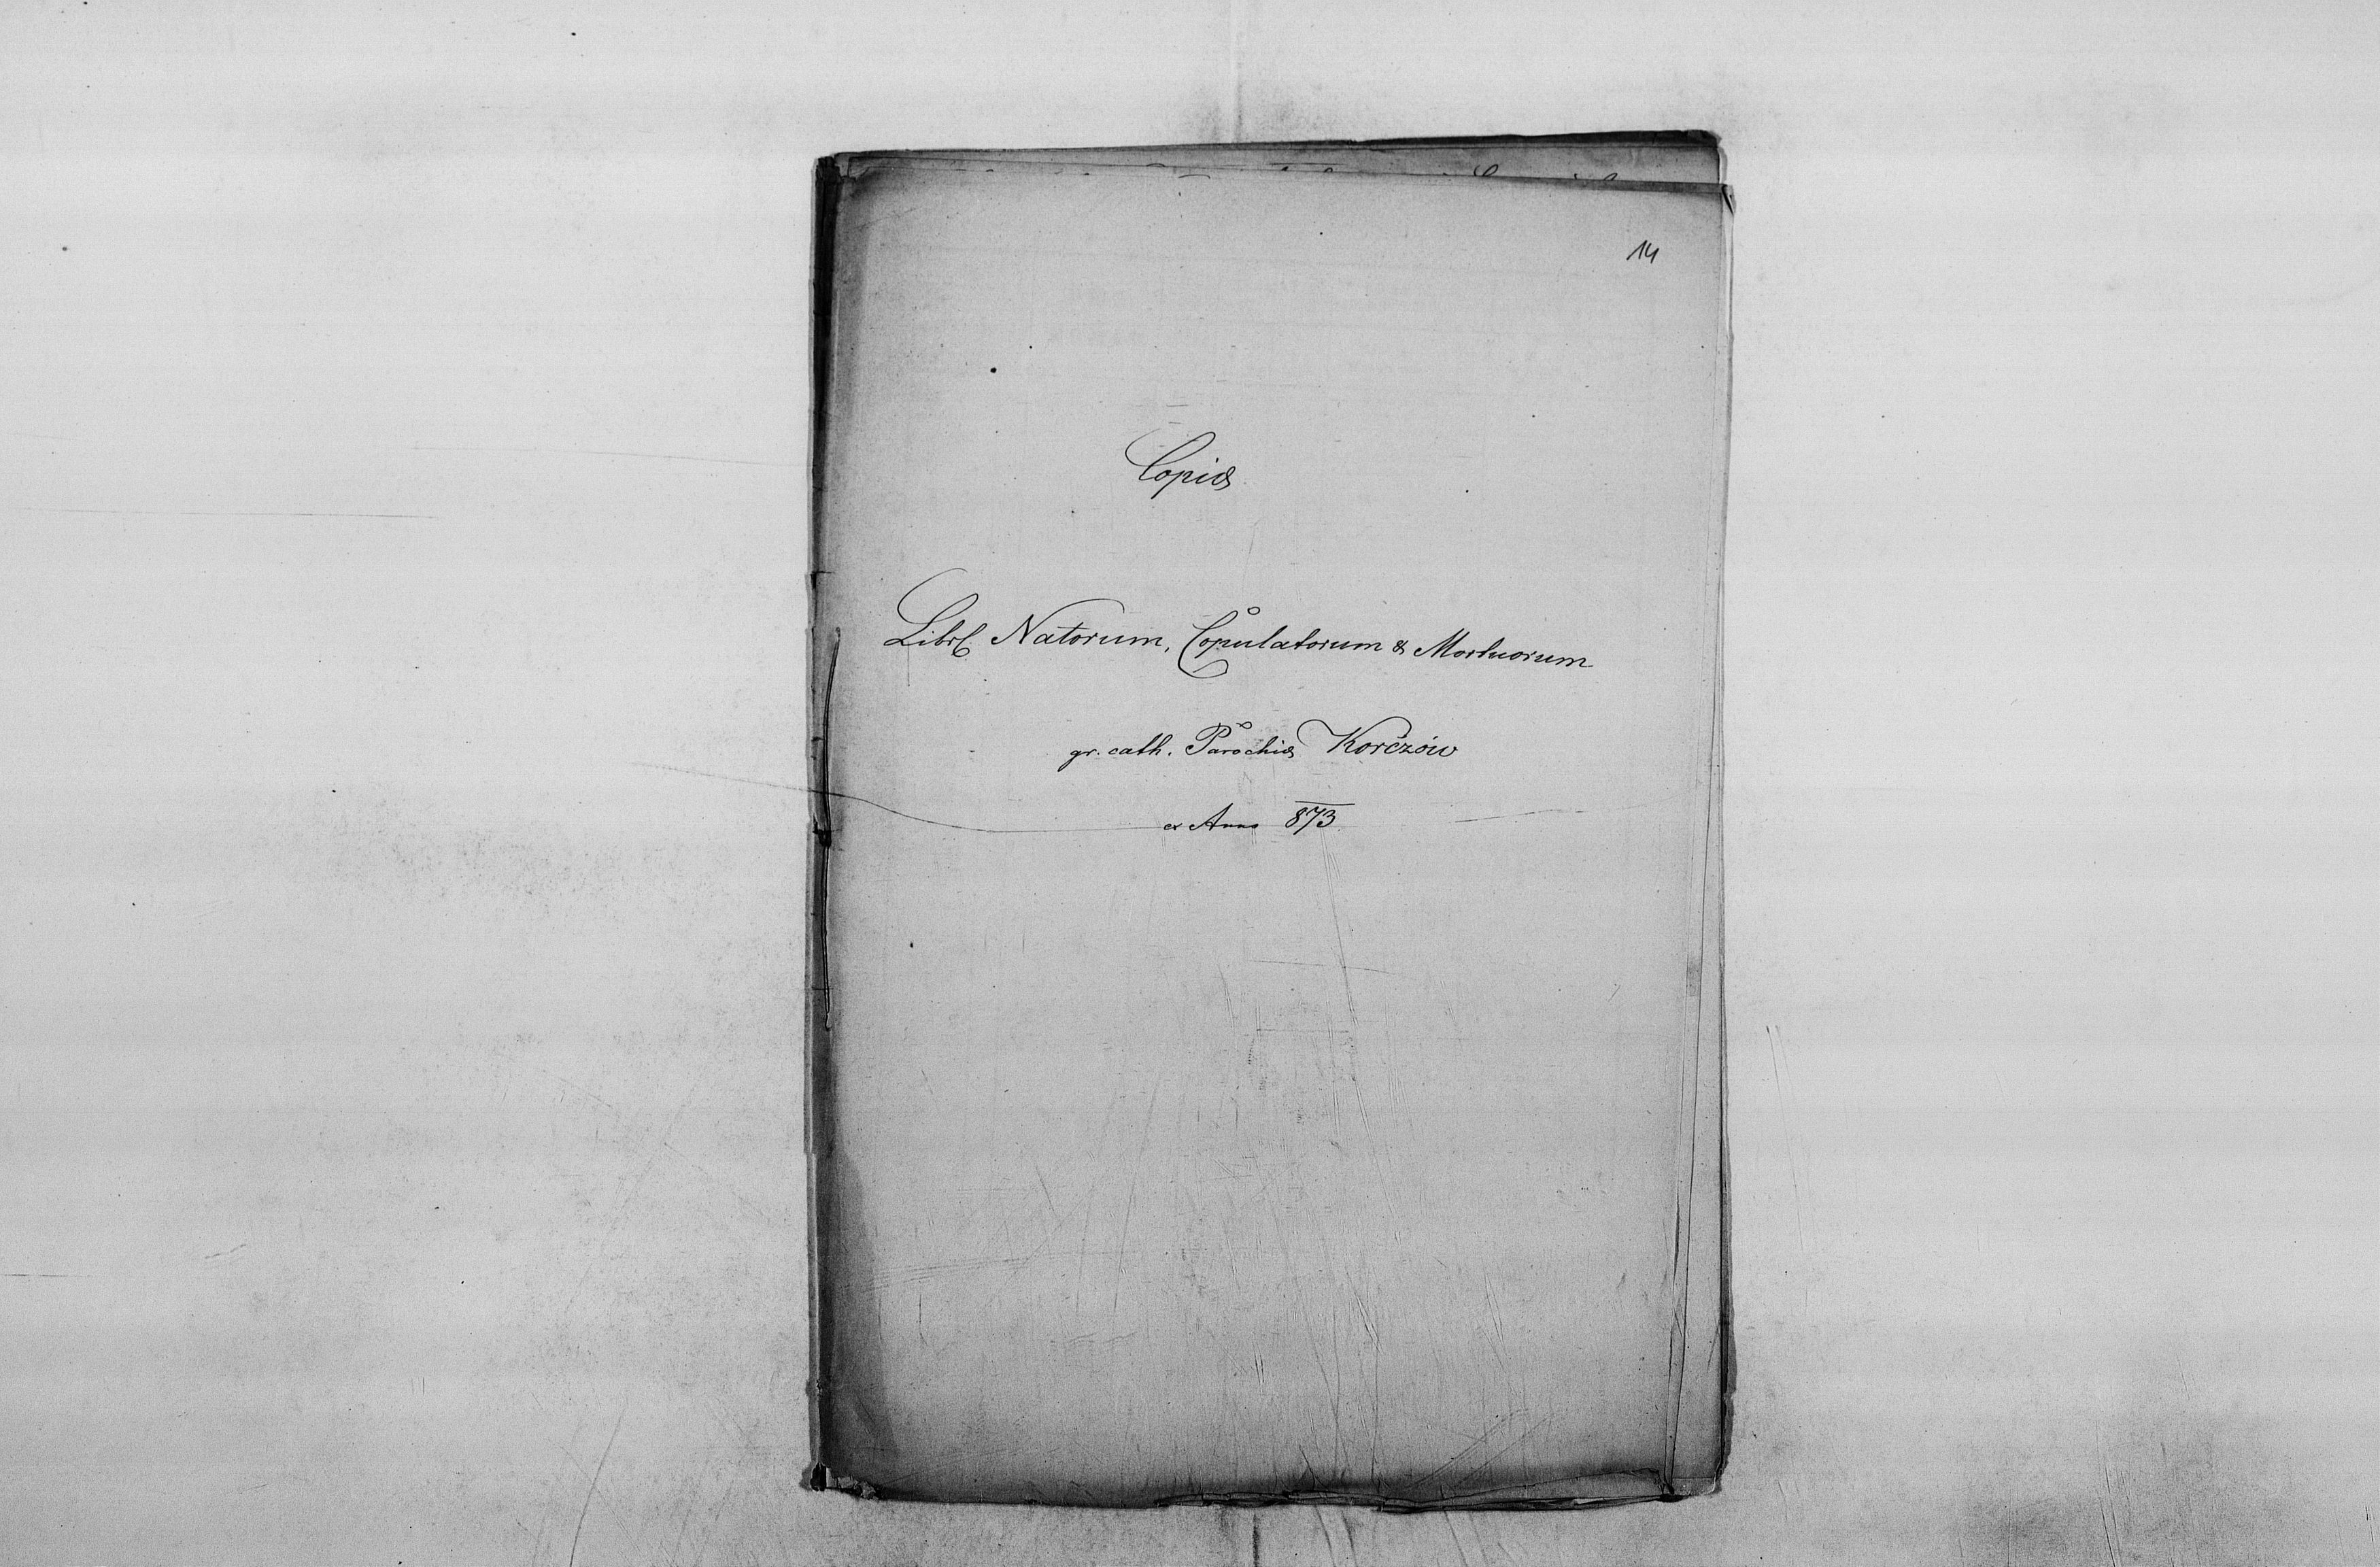 14
Copiæ
Libri Natorum, Copulatorum & Mortuorum
gr. cath. Parochiæ Korczów
ex Anno 873